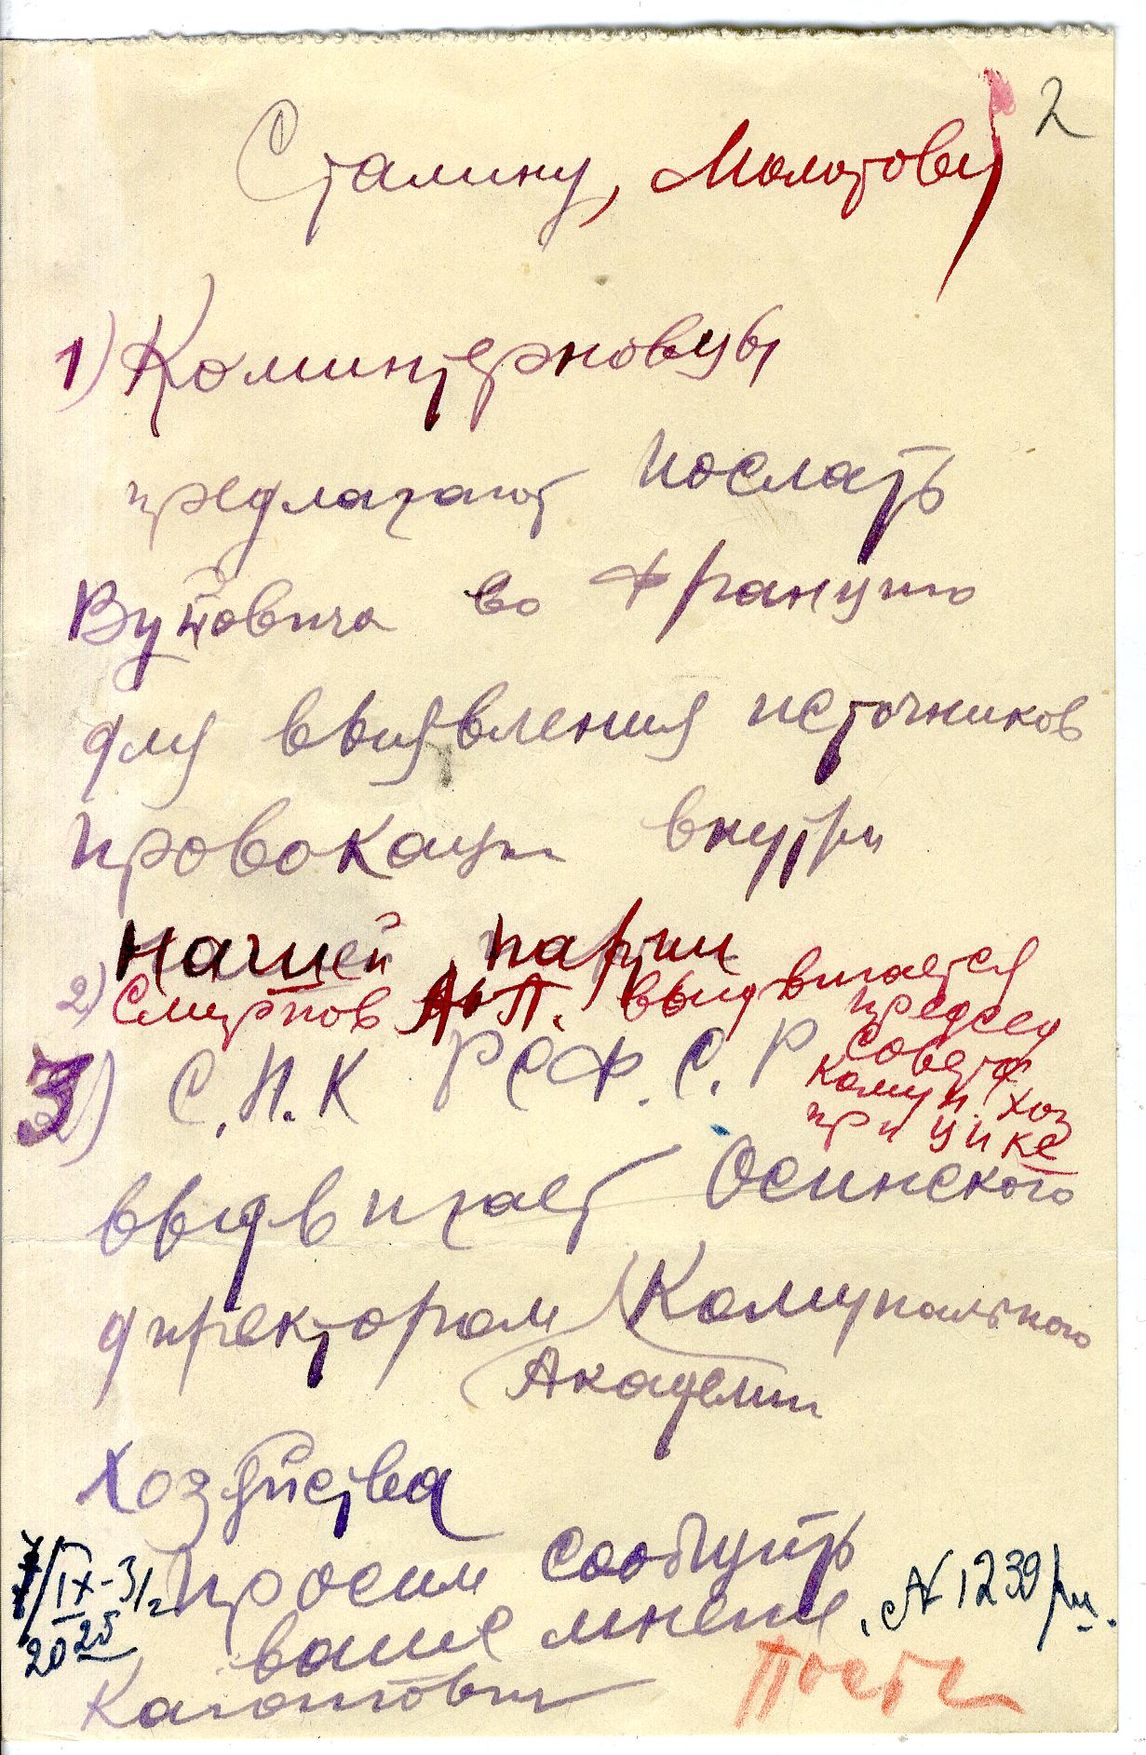 2
Сталину, Молотову
1) Коминтерновцы
предлагают послать
Вуйовича во Францию
для выявления источников
провокации внутри
нашей партии
2) Смирнов А.П. выдвигается
председ
Совета
Комун. хоз
при ЦИКе
3) С.Н.К РСФ.С.Р
выдвигает Осинского
директором Комунального
Академии
хозяйства
просим сообщить
ваше мнение.
Каганович
7/IX-31г
20 25
№ 1239/ш.